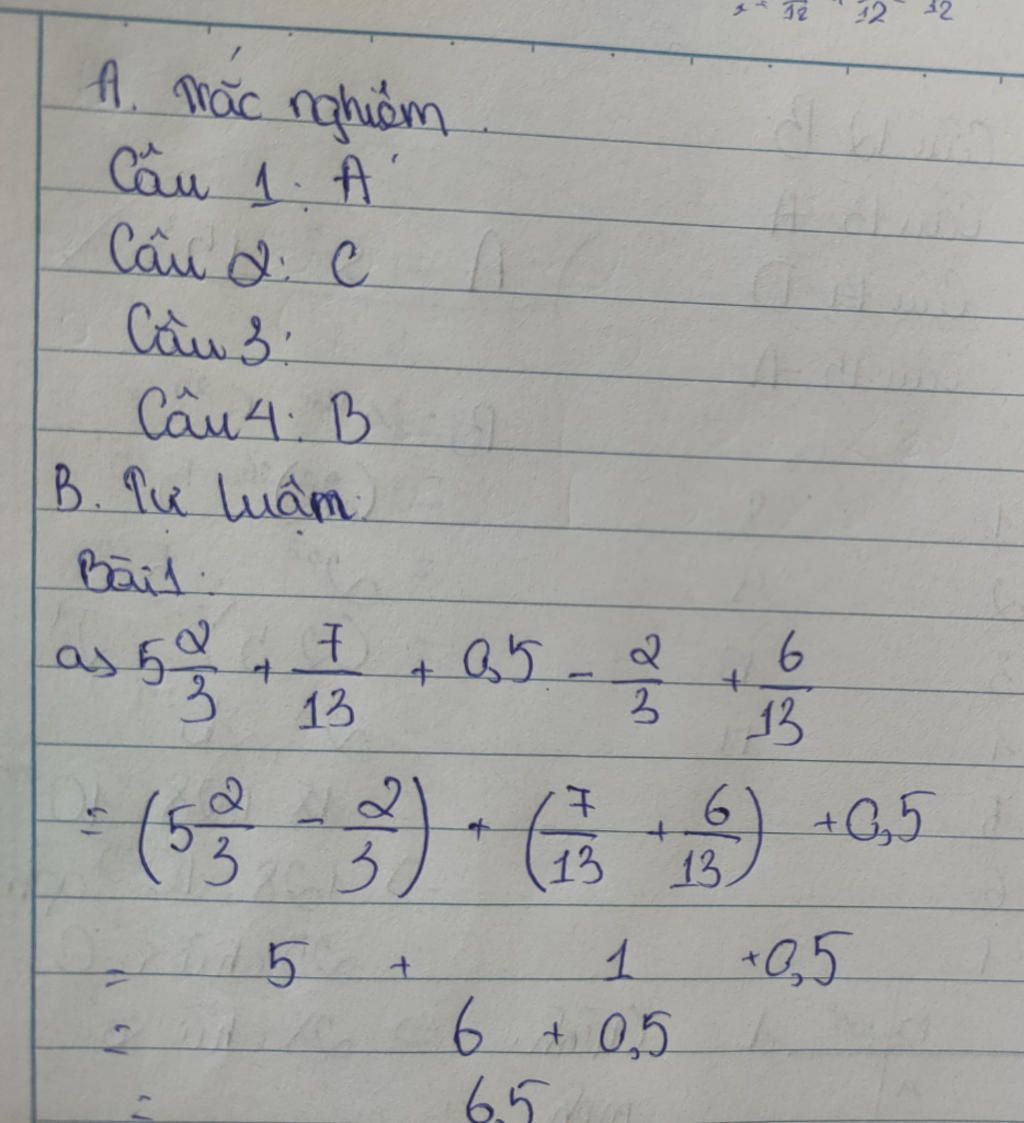 A. Trắc nghiệm
Câu 1: A
Câu 2: C
Câu 3:
Câu 4: B
B. Tự luận:
Bài 1:
a) 5 2/3 + 7/13 + 0,5 - 2/3 + 6/13
= (5 2/3 - 2/3) + (7/13 + 6/13) + 0,5
= 5 + 1 + 0,5
= 6 + 0,5
= 6,5